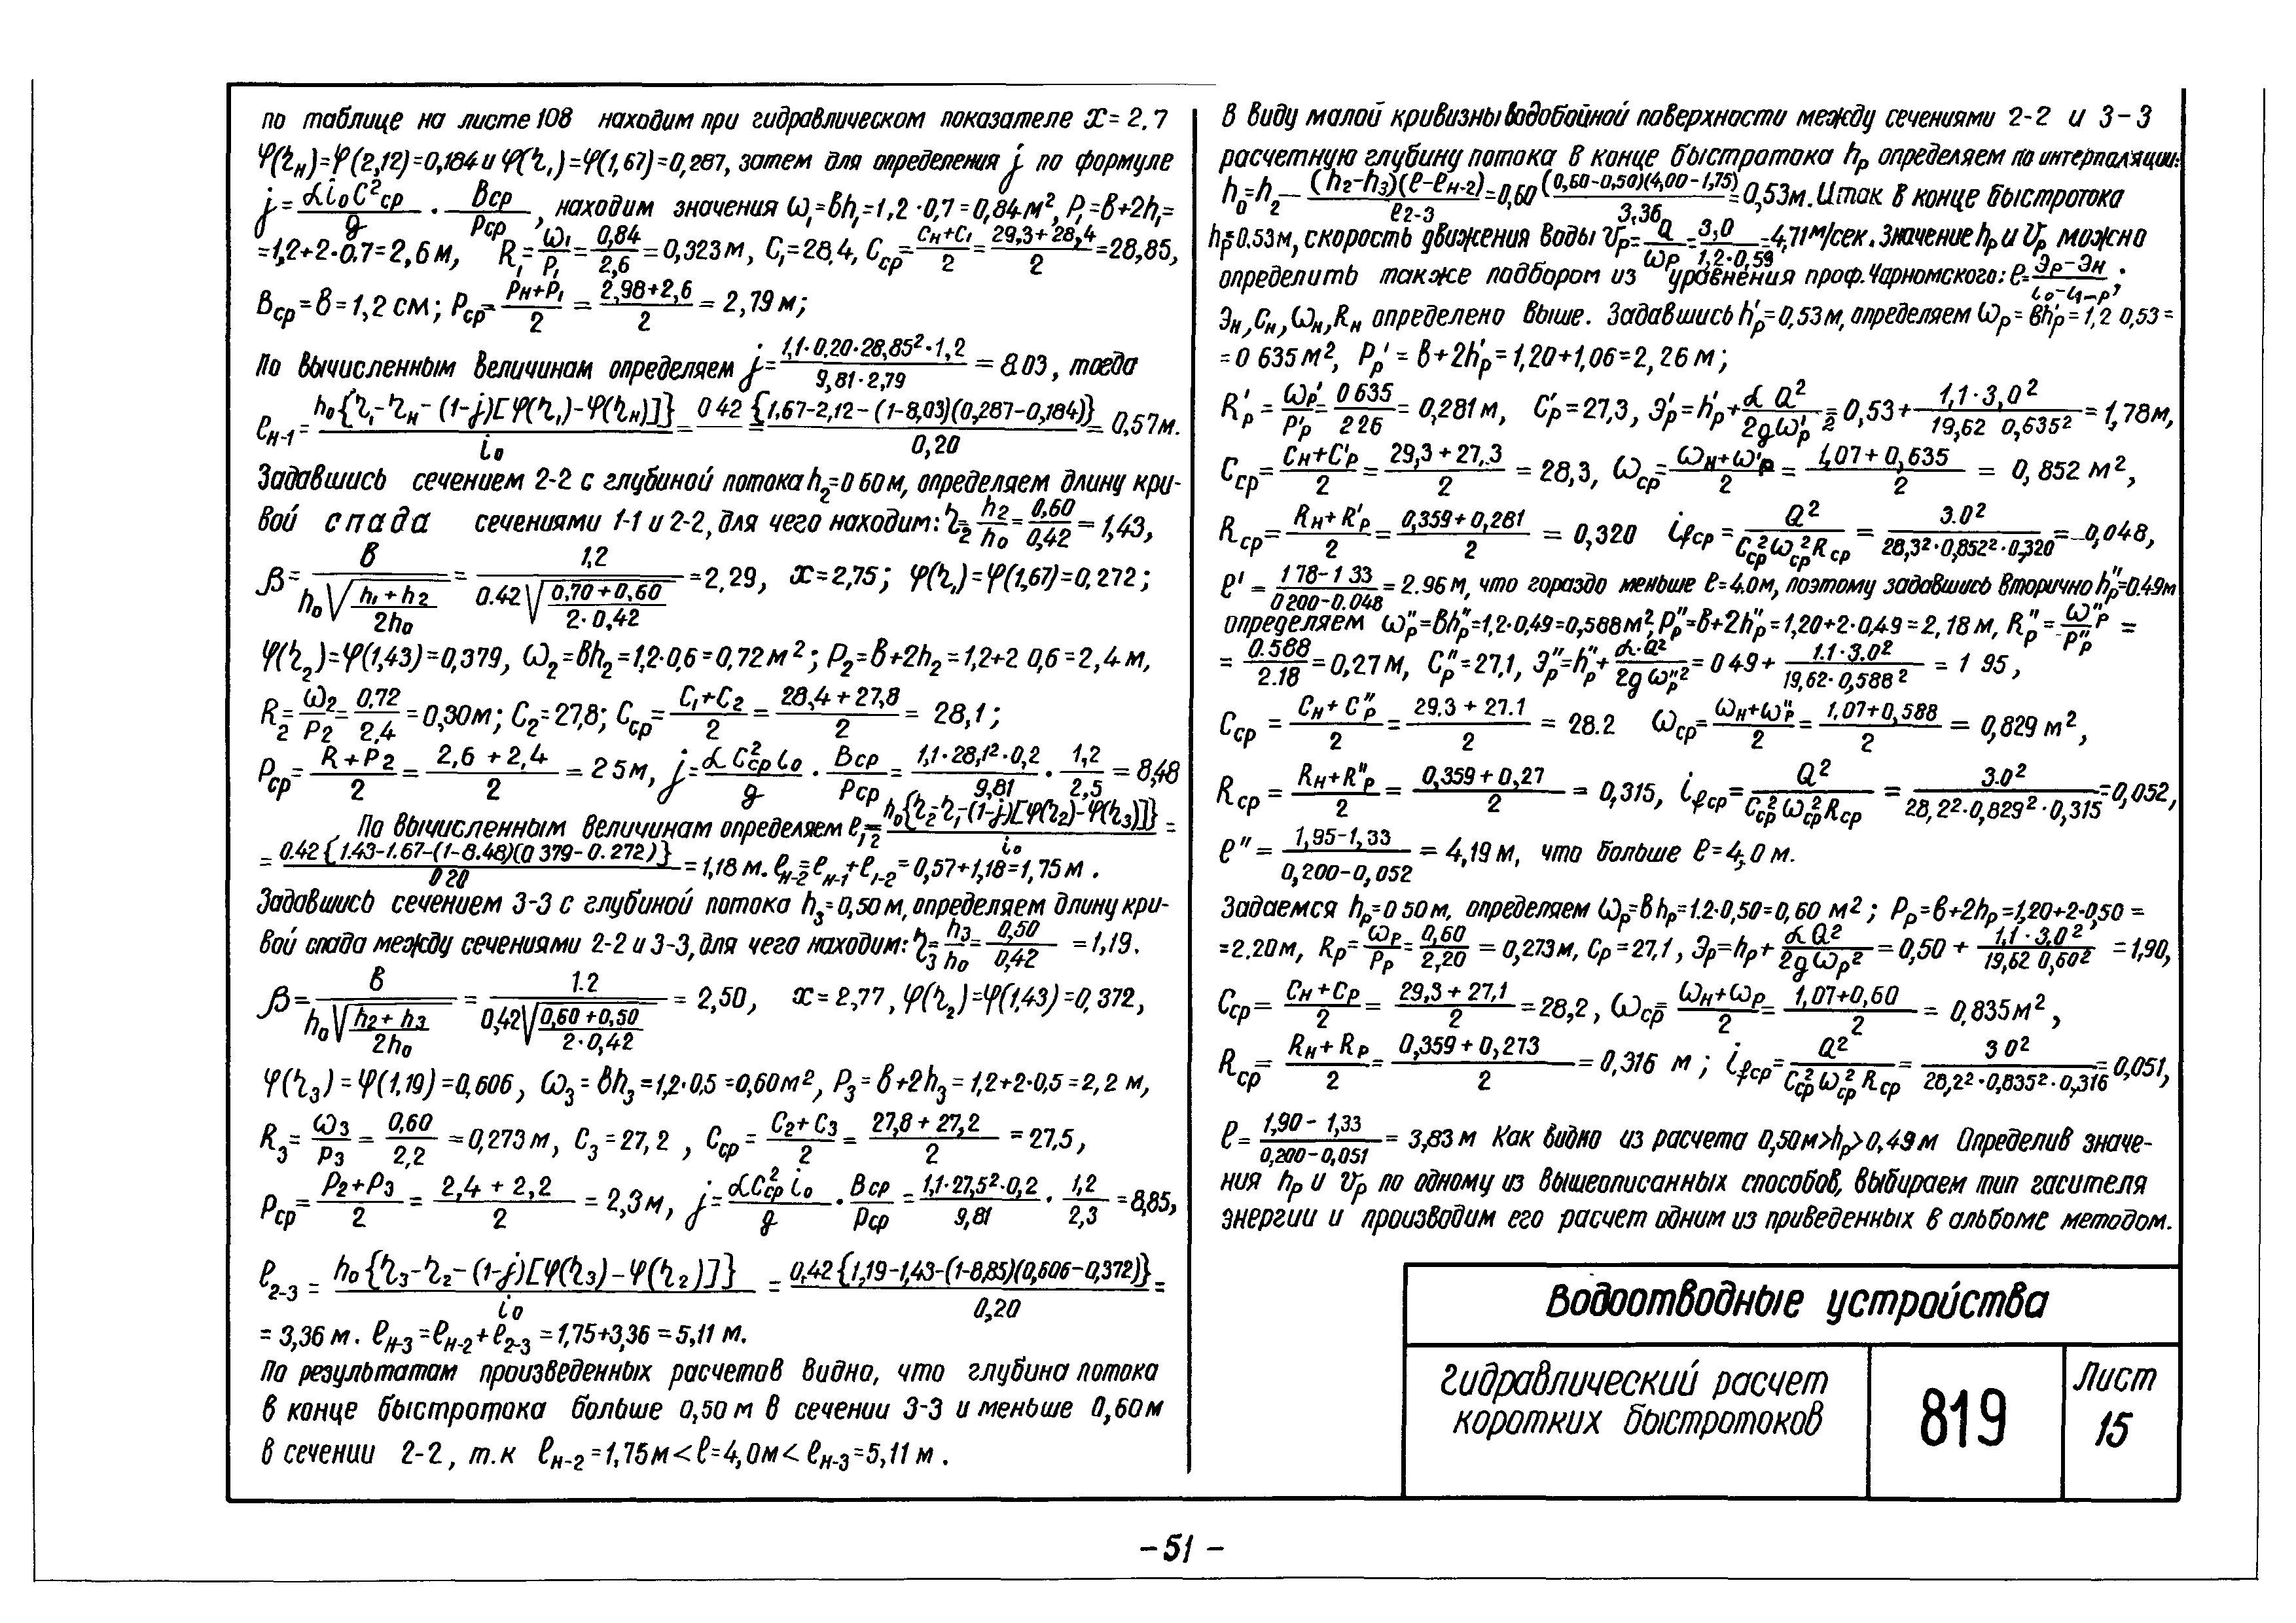 по таблице на листе 108 находим при гидравлическом показателе x=2,7
φ(η_н)=φ(2,12)=0,184 и φ(η₁)=φ(1,67)=0,287, затем для определения j по формуле
j = (αi₀C²ср)/g · Bср/Pср, находим значения ω₁=вh₁=1,2·0,7=0,84м², P₁=в+2h₁=
=1,2+2·0.7=2,6м, R₁=ω₁/P₁=0,84/2,6=0,323м, C₁=28,4, Cср=(Cн+C₁)/2=(29,3+28,4)/2=28,85,
Bср=в=1,2см; Pср=(Pн+P₁)/2=(2,98+2,6)/2=2,79м;
По вычисленным величинам определяем j=(1,1·0,20·28,85²·1,2)/(9,81·2,79)=8.03, тогда
ℓн-1=h₀{η₁-ηн-(1-j)[φ(η₁)-φ(ηн)]}/i₀=0 42{1,67-2,12-(1-8,03)(0,287-0,184)}/0,20=0,57м.
Задавшись сечением 2-2 с глубиной потока h₂=0 60м, определяем длину кри-
вой спада сечениями 1-1 и 2-2, для чего находим: η₂=h₂/h₀=0,60/0,42=1,43,
β=в/(h₀√((h₁+h₂)/2h₀))=1.2/(0.42√((0,70+0,60)/(2·0,42)))=2,29, x=2,75; φ(η₁)=φ(1,67)=0,272;
φ(η₂)=φ(1,43)=0,379, ω₂=вh₂=1,2·0,6=0,72м²; P₂=в+2h₂=1,2+2 0,6=2,4м,
R₂=ω₂/P₂=0,72/2.4=0,30м; C₂=27,8; Cср=(C₁+C₂)/2=(28,4+27,8)/2=28,1;
Pср=(R+P₂)/2=(2,6+2,4)/2=2 5м, j=(αC²срi₀)/g·Bср/Pср=(1,1·28,1²·0,2)/9,81·1,2/2,5=8,48
По вычисленным величинам определяем ℓ₁₋₂=h₀{η₂-η₁-(1-j)[φ(η₂)-φ(η₃)]}/i₀=
=0.42{1.43-1.67-(1-8.48)(0 379-0.272)}/0 20=1,18м. ℓн-2=ℓн-1+ℓ₁₋₂=0,57+1,18=1,75м.
Задавшись сечением 3-3 с глубиной потока h₃=0,50м, определяем длину кри-
вой спада между сечениями 2-2 и 3-3, для чего находим: η₃=h₃/h₀=0,50/0,42=1,19.
β=в/(h₀√((h₂+h₃)/2h₀))=1.2/(0,42√((0,60+0,50)/(2·0,42)))=2,50, x=2,77, φ(η₂)=φ(1,43)=0,372,
φ(η₃)=φ(1,19)=0,606, ω₃=вh₃=1,2·0,5=0,60м², P₃=в+2h₃=1,2+2·0,5=2,2 м,
R₃=ω₃/P₃=0,60/2,2=0,273м, C₃=27,2, Cср=(C₂+C₃)/2=(27,8+27,2)/2=27,5,
Pср=(P₂+P₃)/2=(2,4+2,2)/2=2,3м, j=(αC²срi₀)/g·Bср/Pср=(1,1·27,5²·0,2)/9,81·1,2/2,3=8,85,
ℓ₂₋₃=h₀{η₃-η₂-(1-j)[φ(η₃)-φ(η₂)]}/i₀=0,42{1,19-1,43-(1-8,85)(0,606-0,372)}/0,20=
=3,36м. ℓн-3=ℓн-2+ℓ₂₋₃=1,75+3,36=5,11 м.
По результатам произведенных расчетов видно, что глубина потока
в конце быстротока больше 0,50м в сечении 3-3 и меньше 0,60м
в сечении 2-2, т.к ℓн-2=1,75м<ℓ=4,0м<ℓн-3=5,11м.
В виду малой кривизны водобойной поверхности между сечениями 2-2 и 3-3
расчетную глубину потока в конце быстротока hр определяем по интерполяции:
h₀=h₂-(h₂-h₃)(ℓ-ℓн-2)/ℓ₂₋₃=0,60 (0,60-0,50)(4,00-1,75)/3,36=0,53м. Итак в конце быстротока
hр=0.53м, скорость движения воды Vр=Q/ωр=3,0/(1,2·0,53)=4,71м/сек. Значение hр и Vр можно
определить также подбором из уравнения проф. Чарномского: ℓ=(Эр-Эн)/(i₀-if-р);
Эн, Cн, ωн, Rн определено выше. Задавшись h'р=0,53м, определяем ωр=вh'р=1,2 0,53=
=0 635м², Pр'=в+2h'р=1,20+1,06=2,26м;
R'р=ωр'/P'р=0 635/2 26=0,281м, C'р=27,3, Э'р=h'р+αQ²/2gω'р²=0,53+1,1·3,0²/19,62 0,635²=1,78м,
Cср=(Cн+C'р)/2=(29,3+27,3)/2=28,3, ωср=(ωн+ω'р)/2=(1,07+0,635)/2=0,852 м²,
Rср=(Rн+R'р)/2=(0,359+0,281)/2=0,320 ifср=Q²/C²срω²срRср=3.0²/28,3²·0,852²·0,320=0,048,
ℓ'=(1 78-1 33)/(0 200-0.048)=2.96м, что гораздо меньше ℓ=4.0м, поэтому задавшись вторично h''р=0.49м
определяем ω''р=вh''р=1,2·0,49=0,588м², P''р=в+2h''р=1,20+2·0,49=2,18м, R''р=ω''р/P''р=
=0.588/2.18=0,27м, C''р=27,1, Э''р=h''р+α·Q²/2gω''р²=0 49+1.1·3.0²/19,62·0,588²=1 95,
Cср=(Cн+C''р)/2=(29.3+27.1)/2=28.2 ωср=(ωн+ω''р)/2=(1,07+0,588)/2=0,829м²,
Rср=(Rн+R''р)/2=(0,359+0,27)/2=0,315, ifср=Q²/C²срω²срRср=3.0²/28,2²·0,829²·0,315=0,052,
ℓ''=(1,95-1,33)/(0,200-0,052)=4,19м, что больше ℓ=4,0 м.
Задаемся hр=0 50м, определяем ωр=вhр=1.2·0,50=0,60 м²; Pр=в+2hр=1,20+2·0,50=
=2.20м, Rр=ωр/Pр=0,60/2,20=0,273м, Cр=27,1, Эр=hр+αQ²/2gωр²=0,50+1,1·3.0²/19,62 0,60²=1,90,
Cср=(Cн+Cр)/2=(29,3+27,1)/2=28,2, ωср=(ωн+ωр)/2=(1,07+0,60)/2=0,835м²,
Rср=(Rн+Rр)/2=(0,359+0,273)/2=0,316 м; ifср=Q²/C²срω²срRср=3 0²/28,2²·0,835²·0,316=0,051,
ℓ=(1,90-1,33)/(0,200-0,051)=3,83м Как видно из расчета 0,50м>hр>0,49м Определив значе-
ния hр и Vр по одному из вышеописанных способов, выбираем тип гасителя
энергии и производим его расчет одним из приведенных в альбоме методом.
Водоотводные устройства
Гидравлический расчет
коротких быстротоков
819
Лист
15
-51-